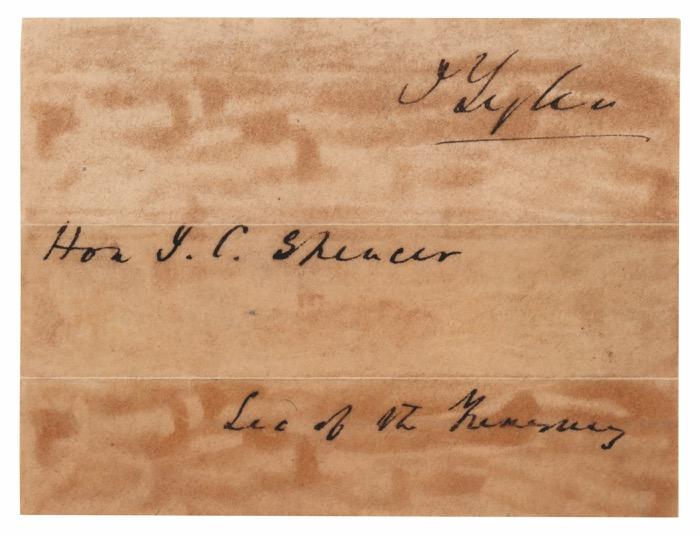 J Tyler
Hon J. C. Spencer
Sec of the Treasury